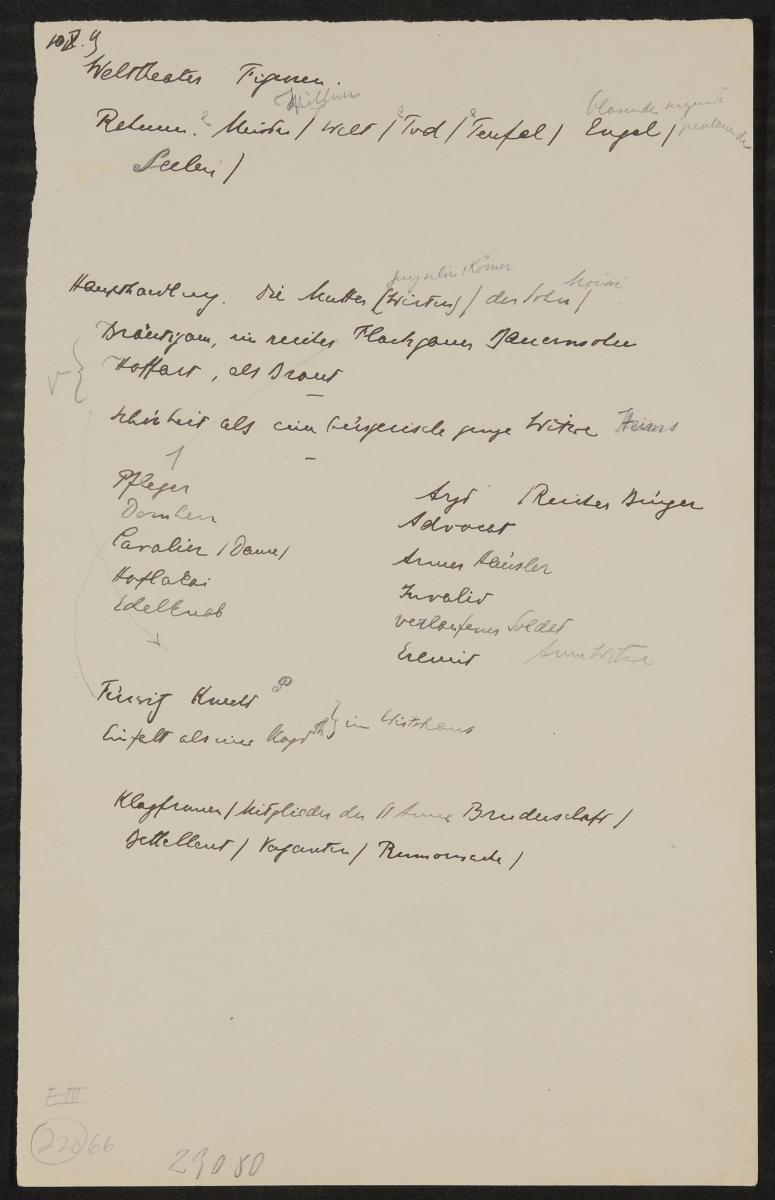 10 X. 9
Weltheater Figuren.
Wüllner
blasende singende
Rahmen. Meister / Welt / Tod / Teufel / Engel /
Seelen /
Körner
Moissi
Haupthandlung. Die Mutter (Wirtin) / der Sohn /
Bräutigam, ein reicher Flachgauer Bauernsohn
Hoffart, als Braut
Schönheit als eine bürgerliche junge Witwe Heims
Pfleger
Domherr
Cavalier / Dame /
Hoflakai
Edelknab
Arzt / Reicher Bürger
Advocat
Armer Häusler
Invalid
verlaufener Soldat
Eremit Arme Witwe
Fürwitz Knecht P
Einfalt als eine Magd Th } im Wirtshaus
Klagfrauen / Mitglieder der St Anna Bruderschaft /
Bettelleut / Vaganten / Rumorwache /
E III
220 66
29080